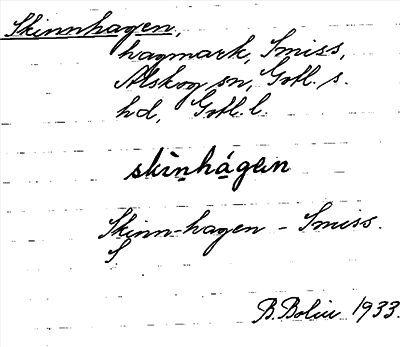 Skinnhagen,
hagmark, Smiss,
Alskog sn, Gotl. s.
hd, Gotl. l.
skìnhágεn
Skinn-hagen - Smiss.
S
B. Bolin 1933.